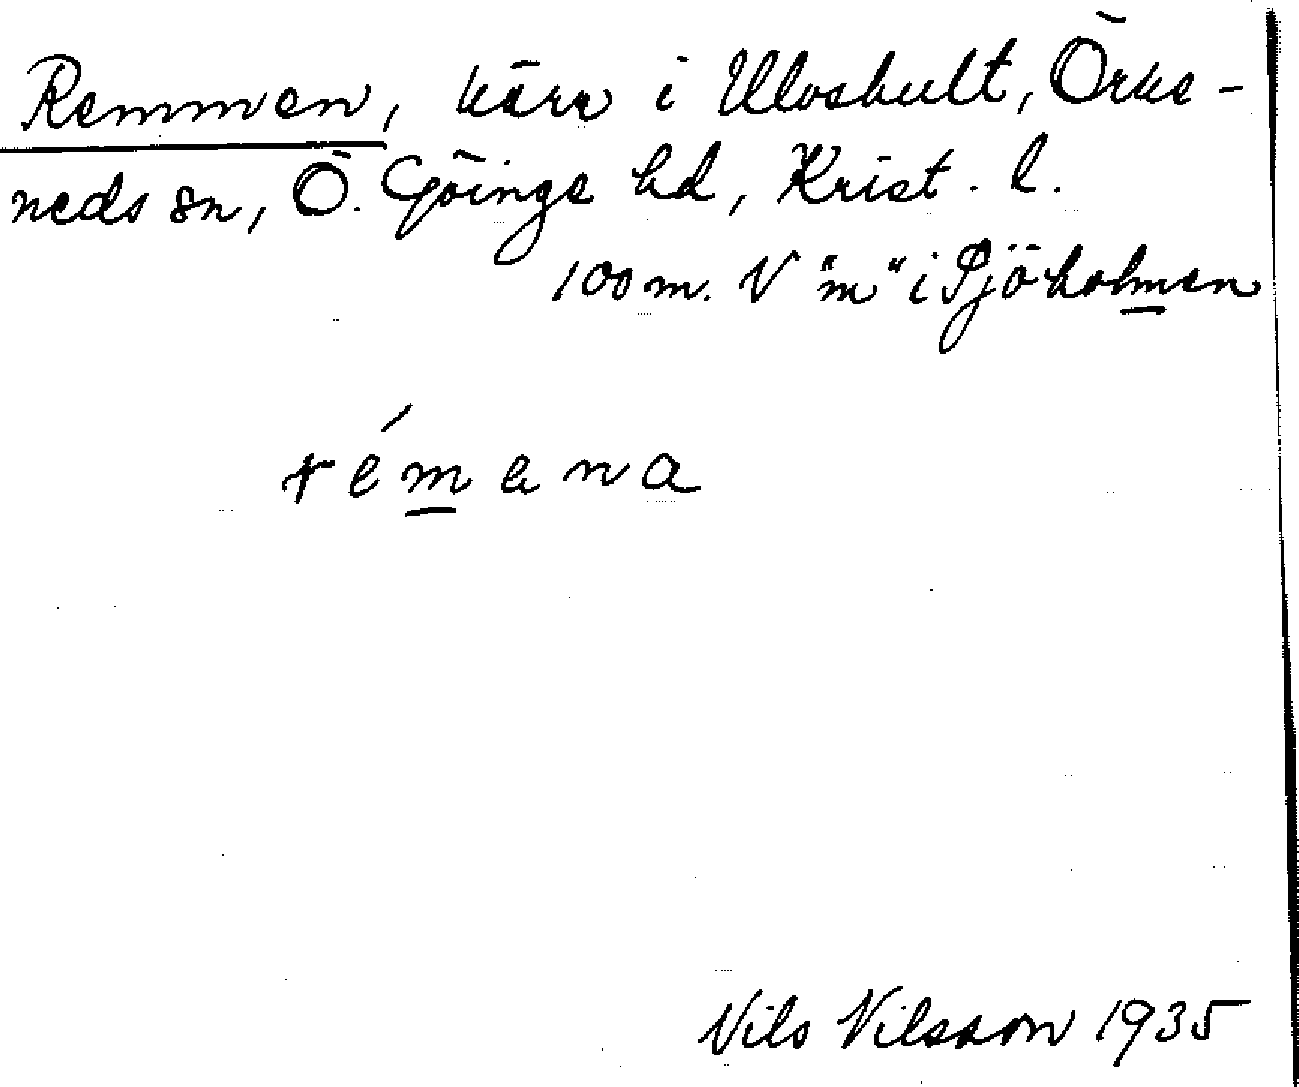 Remmen, kärr i Uloshult, Örke-
neds sn, Ö. Göinge hd, Krist. l.
100 m. V "m" i Sjöholmen
rémena
Nils Nilsson 1935